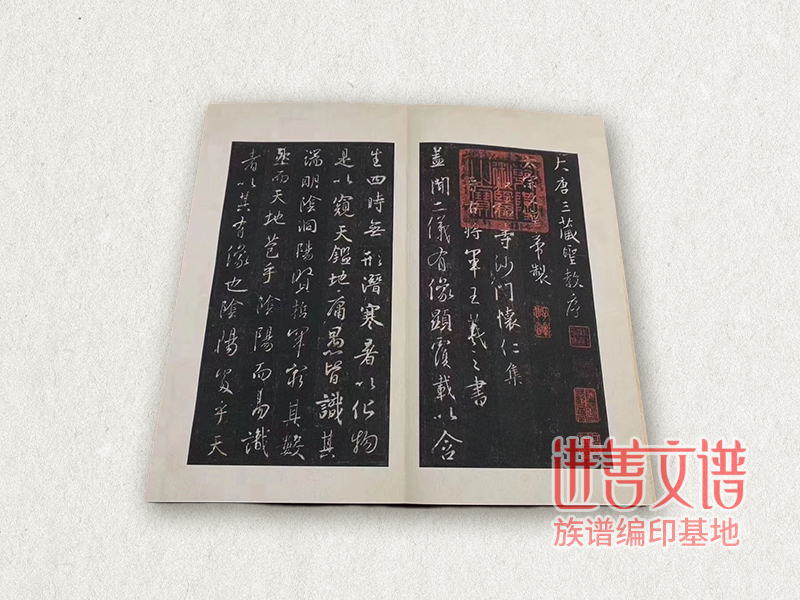 大唐三藏聖教序
太宗文皇帝製
寺沙門懷仁集
右將軍王羲之書
蓋聞二儀有像顯覆載以含
生四時無形潛寒暑以化物
是以窺天鑑地庸愚皆識其
端明陰洞陽賢哲罕窮其數
然而天地苞乎陰陽而易識
者以其有像也陰陽處乎天
善文谱
族谱编印基地